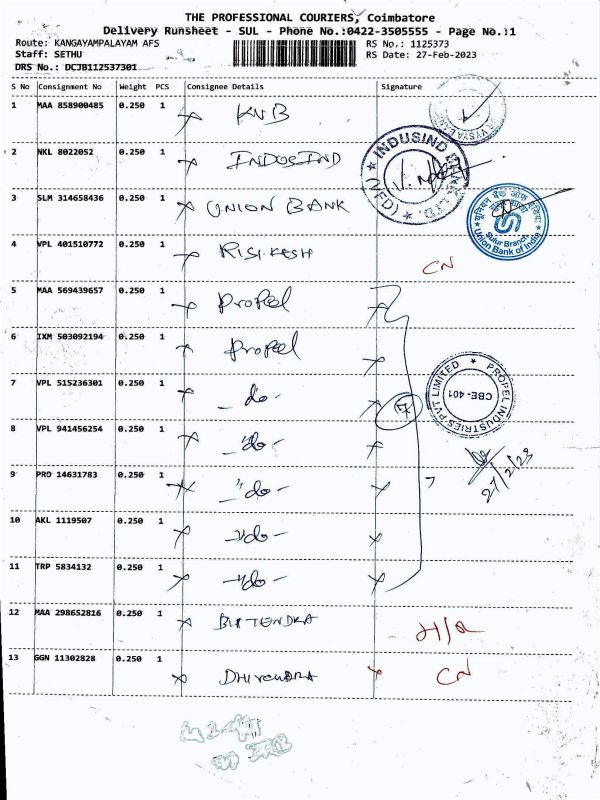 THE PROFESSIONAL COURIERS, Coimbatore
Delivery Runsheet - SUL - Phone No.:0422-3505555 - Page No.:1
Route: KANGAYAMPALAYAM AFS RS No.: 1125373
Staff: SETHU RS Date: 27-Feb-2023
DRS No.: DCJB112537301
S No Consignment No Weight PCS Consignee Details Signature
1 MAA 858900485 0.250 1 KVB
2 NKL 8022052 0.250 1 INDUSIND
INDUSIND BANK LTD. (VFD)
3 SLM 314658436 0.250 1 UNION BANK
यूनियन बैंक ऑफ इंडिया
Sulur Branch
Union Bank of India
4 VPL 401510772 0.250 1 RISIKESH CN
5 MAA 569439657 0.250 1 Propel
6 IXM 503092194 0.250 1 Propel
7 VPL 515236301 0.250 1 - do -
7
PROPEL INDUSTRIES PVT LIMITED
CBE - 401
8 VPL 941456254 0.250 1 - "do -
27/2/23
9 PRO 14631783 0.250 1 - "do -
10 AKL 1119507 0.250 1 - "do -
11 TRP 5834132 0.250 1 - "do -
12 MAA 298652816 0.250 1 H/R
13 GGN 11302828 0.250 1 CN